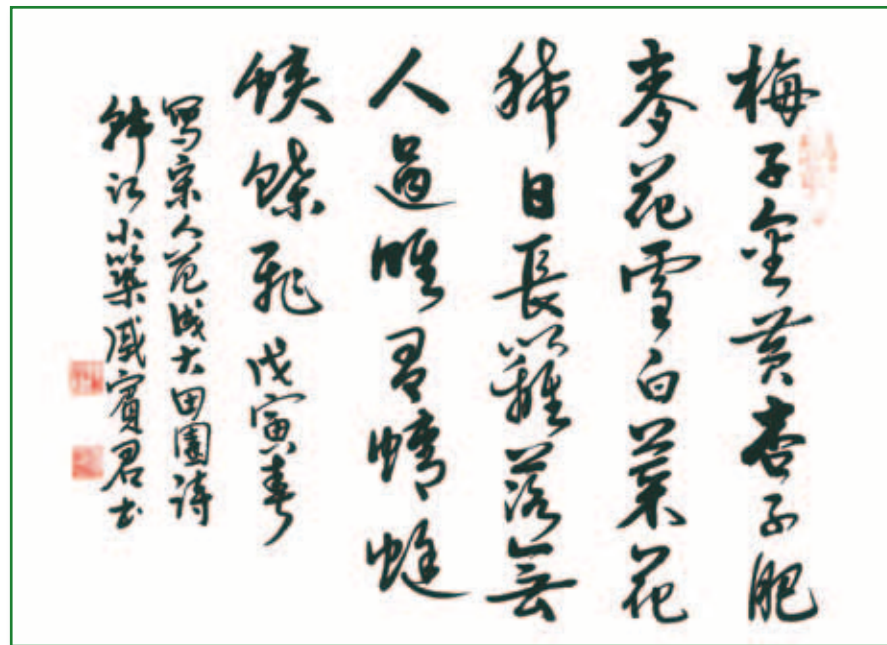 梅子金黄杏子肥
麥花雪白菜花
稀日長籬落無
人過唯有蜻蜓
蛺蝶飛 戊寅春
寫宋人范成大田園詩
江小築賓君书